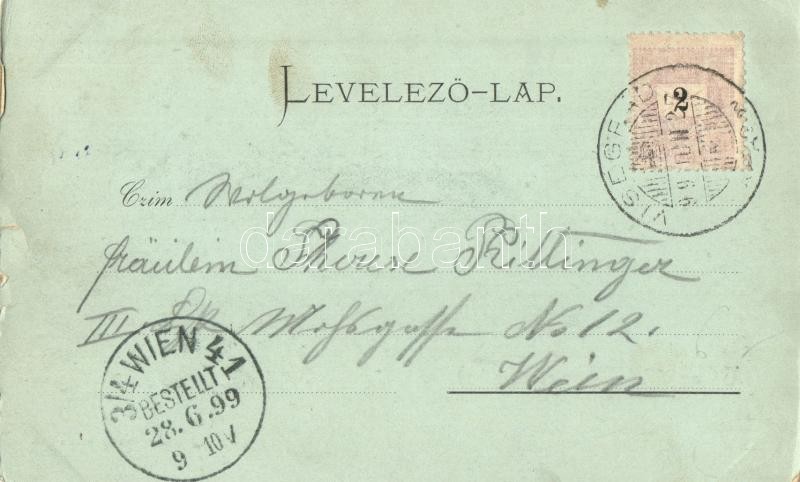 LEVELEZŐ-LAP.
2
VISEGRÁD
Czim Wolgeboren
fräulein Therese Rittinger
III Bzk Mohsgasse No 12.
Wein
3/4 WIEN 41
BESTELLT
28.6.99
9–10V
darabanth